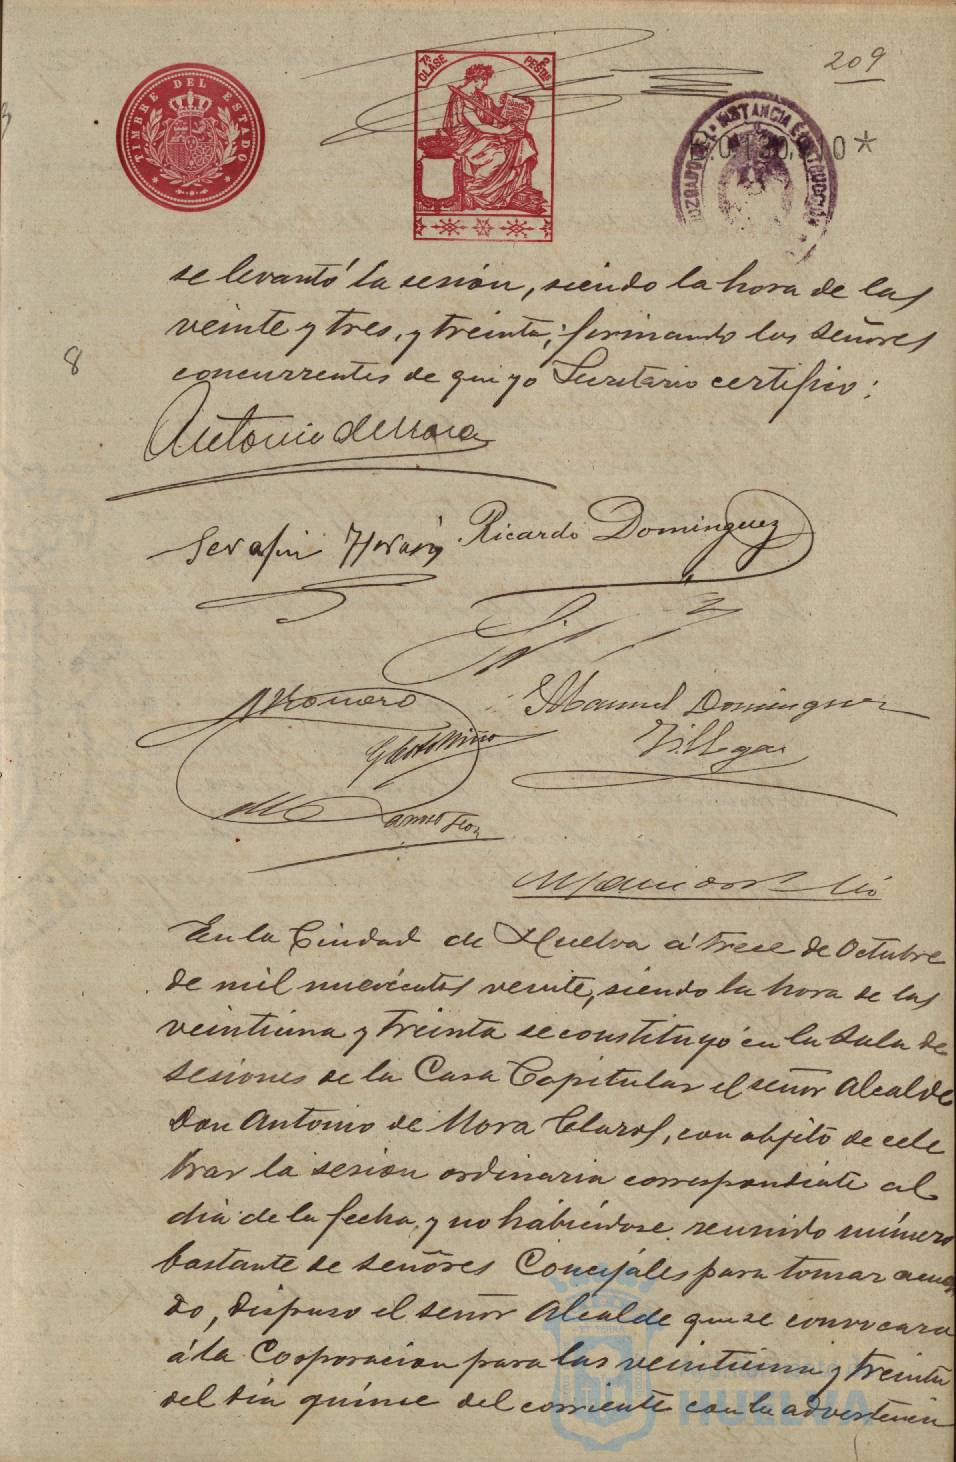 209
TIMBRE DEL ESTADO
7ª CLASE
2 PESETAS
JUZGADO DE INSTANCIA E INSTRUCCION
8
se levantó la sesión, siendo la hora de las
veinte y tres, y treinta, firmando los señores
concurrentes de que yo Secretario certifico:
Antonio de Mora
Serafin Ricardo Dominguez
A Romero
Manuel Dominguez
Villegas
En la Ciudad de Huelva á trece de Octubre
de mil nuevecientos veinte, siendo la hora de las
veintiuna y treinta se constituyó en la Sala de
sesiones de la Casa Capitular el señor Alcalde
Don Antonio de Mora Claros, con objeto de cele
brar la sesion ordinaria correspondiente al
dia de la fecha, y no habiéndose reunido número
bastante de señores Concejales para tomar acuer
do, dispuso el señor Alcalde que se convocara
á la Corporacion para las veintiuna y treinta
del dia quince del corriente con la advertencia
HUELVA